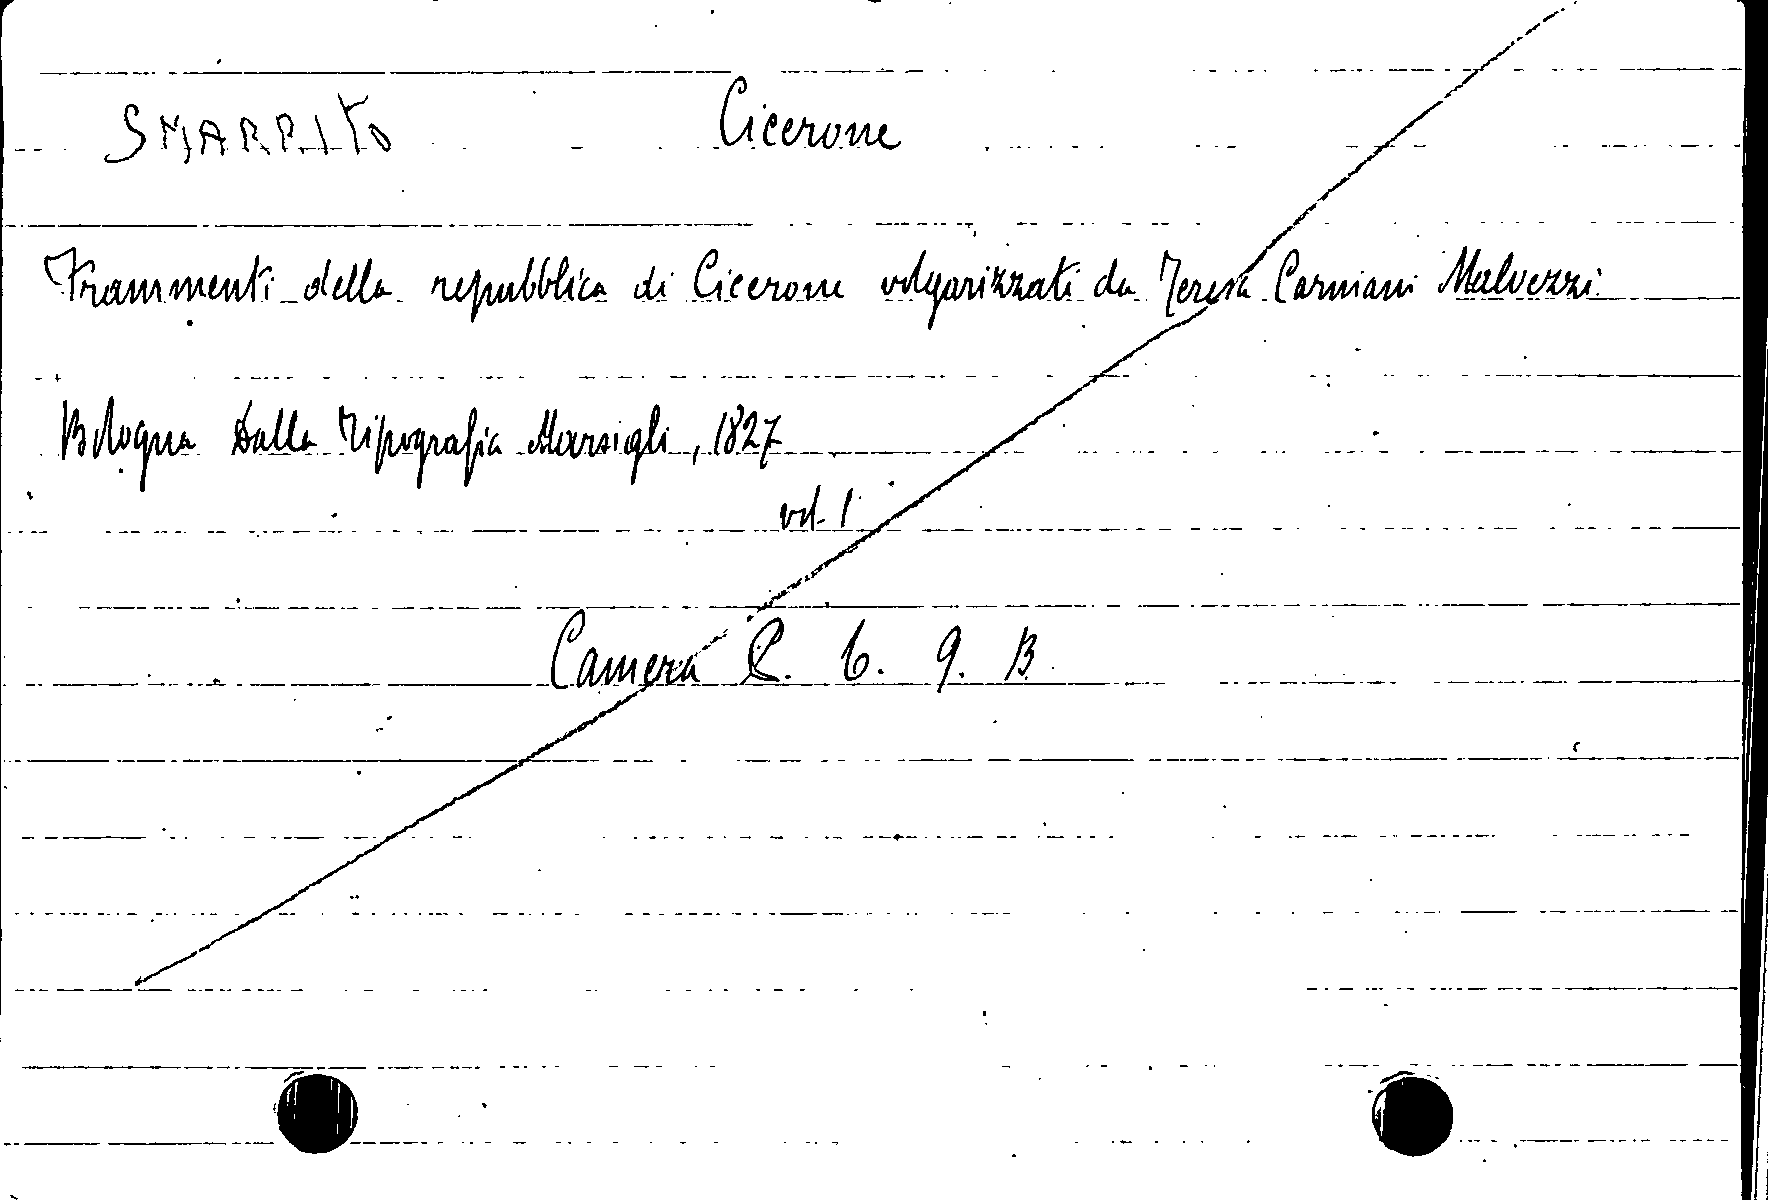 SMARRITO
Cicerone
Frammenti della repubblica di Cicerone volgarizzati da Teresa Carniani Malvezzi
Bologna Dalla Tipografia Marsigli, 1827
vol. 1
Camera C. 6. 9. B